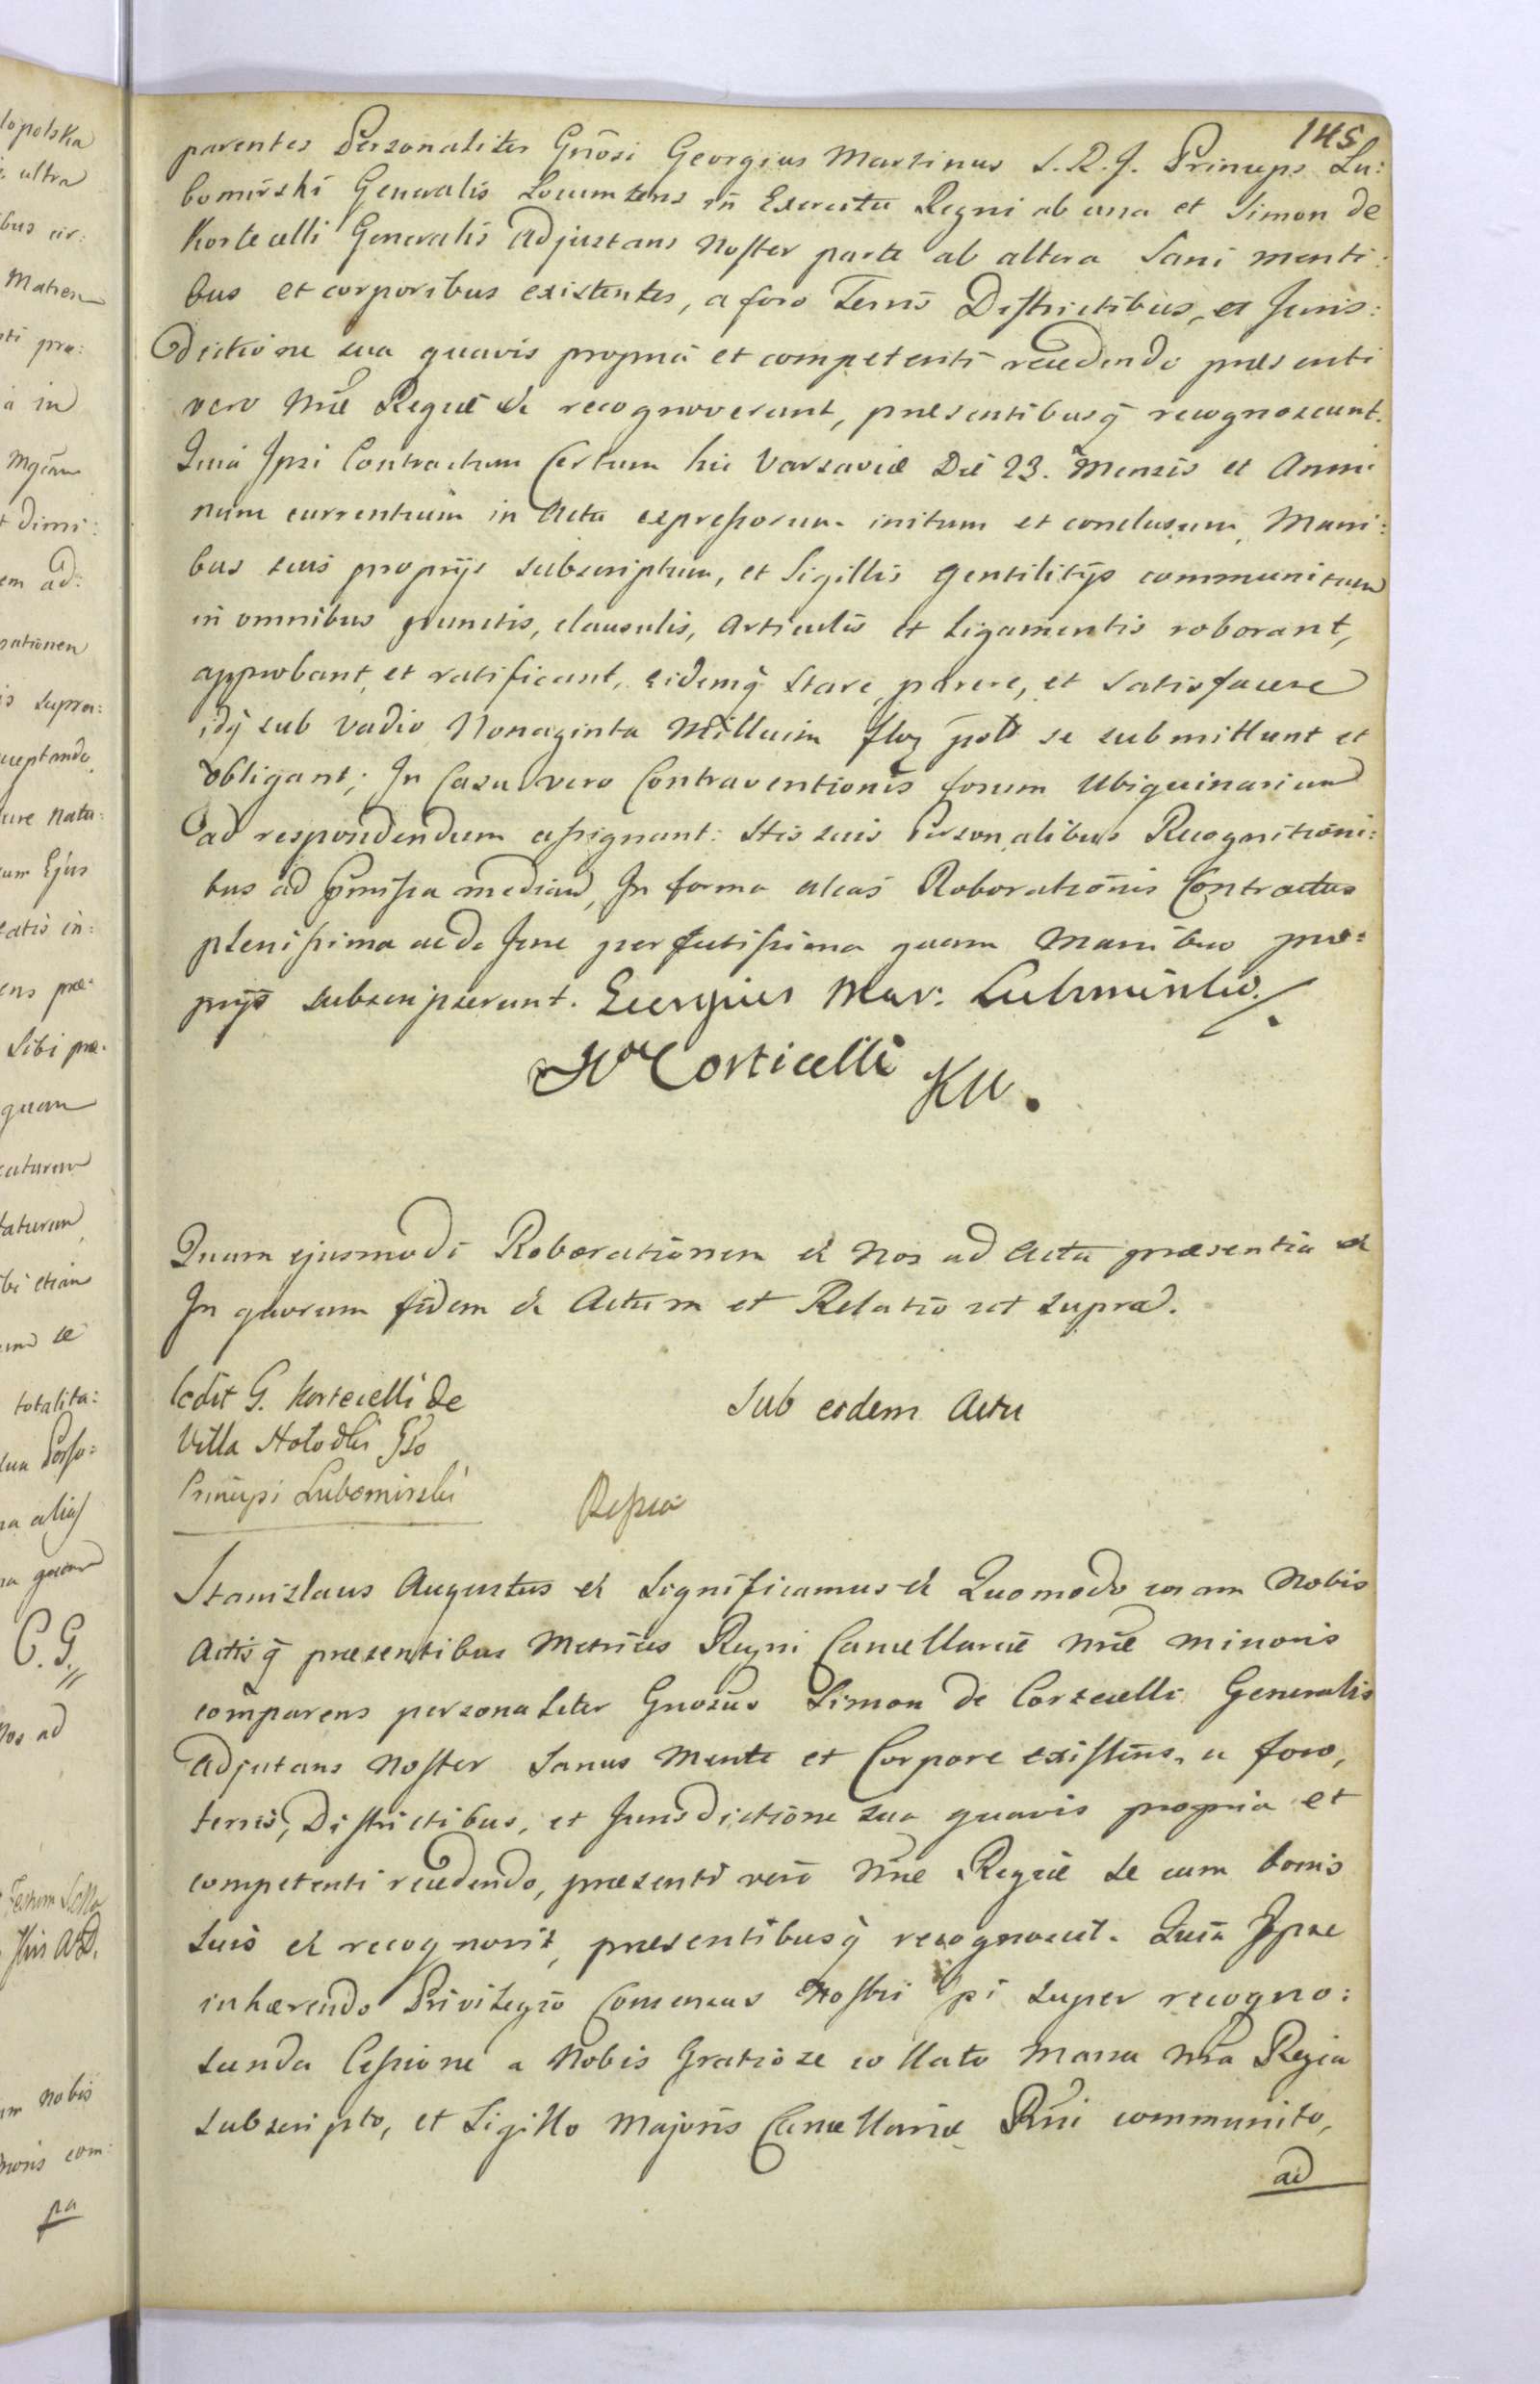 145
parentes Personaliter Gnosi Georgius Martinus S.R.J. Princeps Lu:
bomirski Generalis Locumtens in Exercitu Regni ab una et Simon de
Kortecelli Generalis Adjustans Noster parte ab altera Sani menti:
bus et corporibus existentes, a foro Terris Districtibus, et Juris:
dictione sua quavis propria et competenti recedendo presenti
vero Nrae Regiae &c recognoverunt, presentibusq recognoscunt.
Quia Ipsi Contractum Certum hic Varsaviae Die 23. Mensis et Anni
nunc currentium in Actu expressorum initum et conclusum, Mani:
bus suis proprijs subscriptum, et Sigillis gentilitijs communitum
in omnibus punctis, clausulis, Articulis et Ligamentis roborant,
approbant, et ratificant, eidemq stare, parere, et satisfacere
idq sub vadio Nonaginta Millium flor pol se submittunt et
obligant; In Casu vero Contraventionis forum Ubiquinarium
ad respondendum assignant: Stis suis Personalibus Recognitioni:
bus ad pmissa median, In forma alias Roborationis Contractus
plenissima ac de Jure perfectissima quam Manibus pro:
prijs subscripserunt. Georgius Mar: Lubomirski
Corticelli
Quam ejusmodi Roborationem & Nos ad Acta praesentia &
In quorum fidem & Actum et Relatio ut supra.
Cedit G. Kortecelli de
Villa Holodki Gso
Principi Lubomirski
Sub eodem Actu
Stanislaus Augustus & Significamus & Quomodo coram Nobis
Actisq praesentibus Metrices Regni Cancellariae Nrae minoris
comparens personaliter Gnosus Simon de Cortecelli Generalis
Adjutans Noster Sanus Mente et Corpore existens, a foro,
terris, Districtibus, et Jurisdictione sua quavis propria et
competenti recedendo, praesenti vero Nrae Regiae se cum bonis
suis & recognovit, presentibusq recognoscit. Quia Ipse
inhaerendo Privilegio Consensus Nostri pi super recogno:
scenda Cessione a Nobis Gratiose collato Manu Nra Regia
subscripto, et Sigillo Majoris Cancellariae Rni communito,
ad